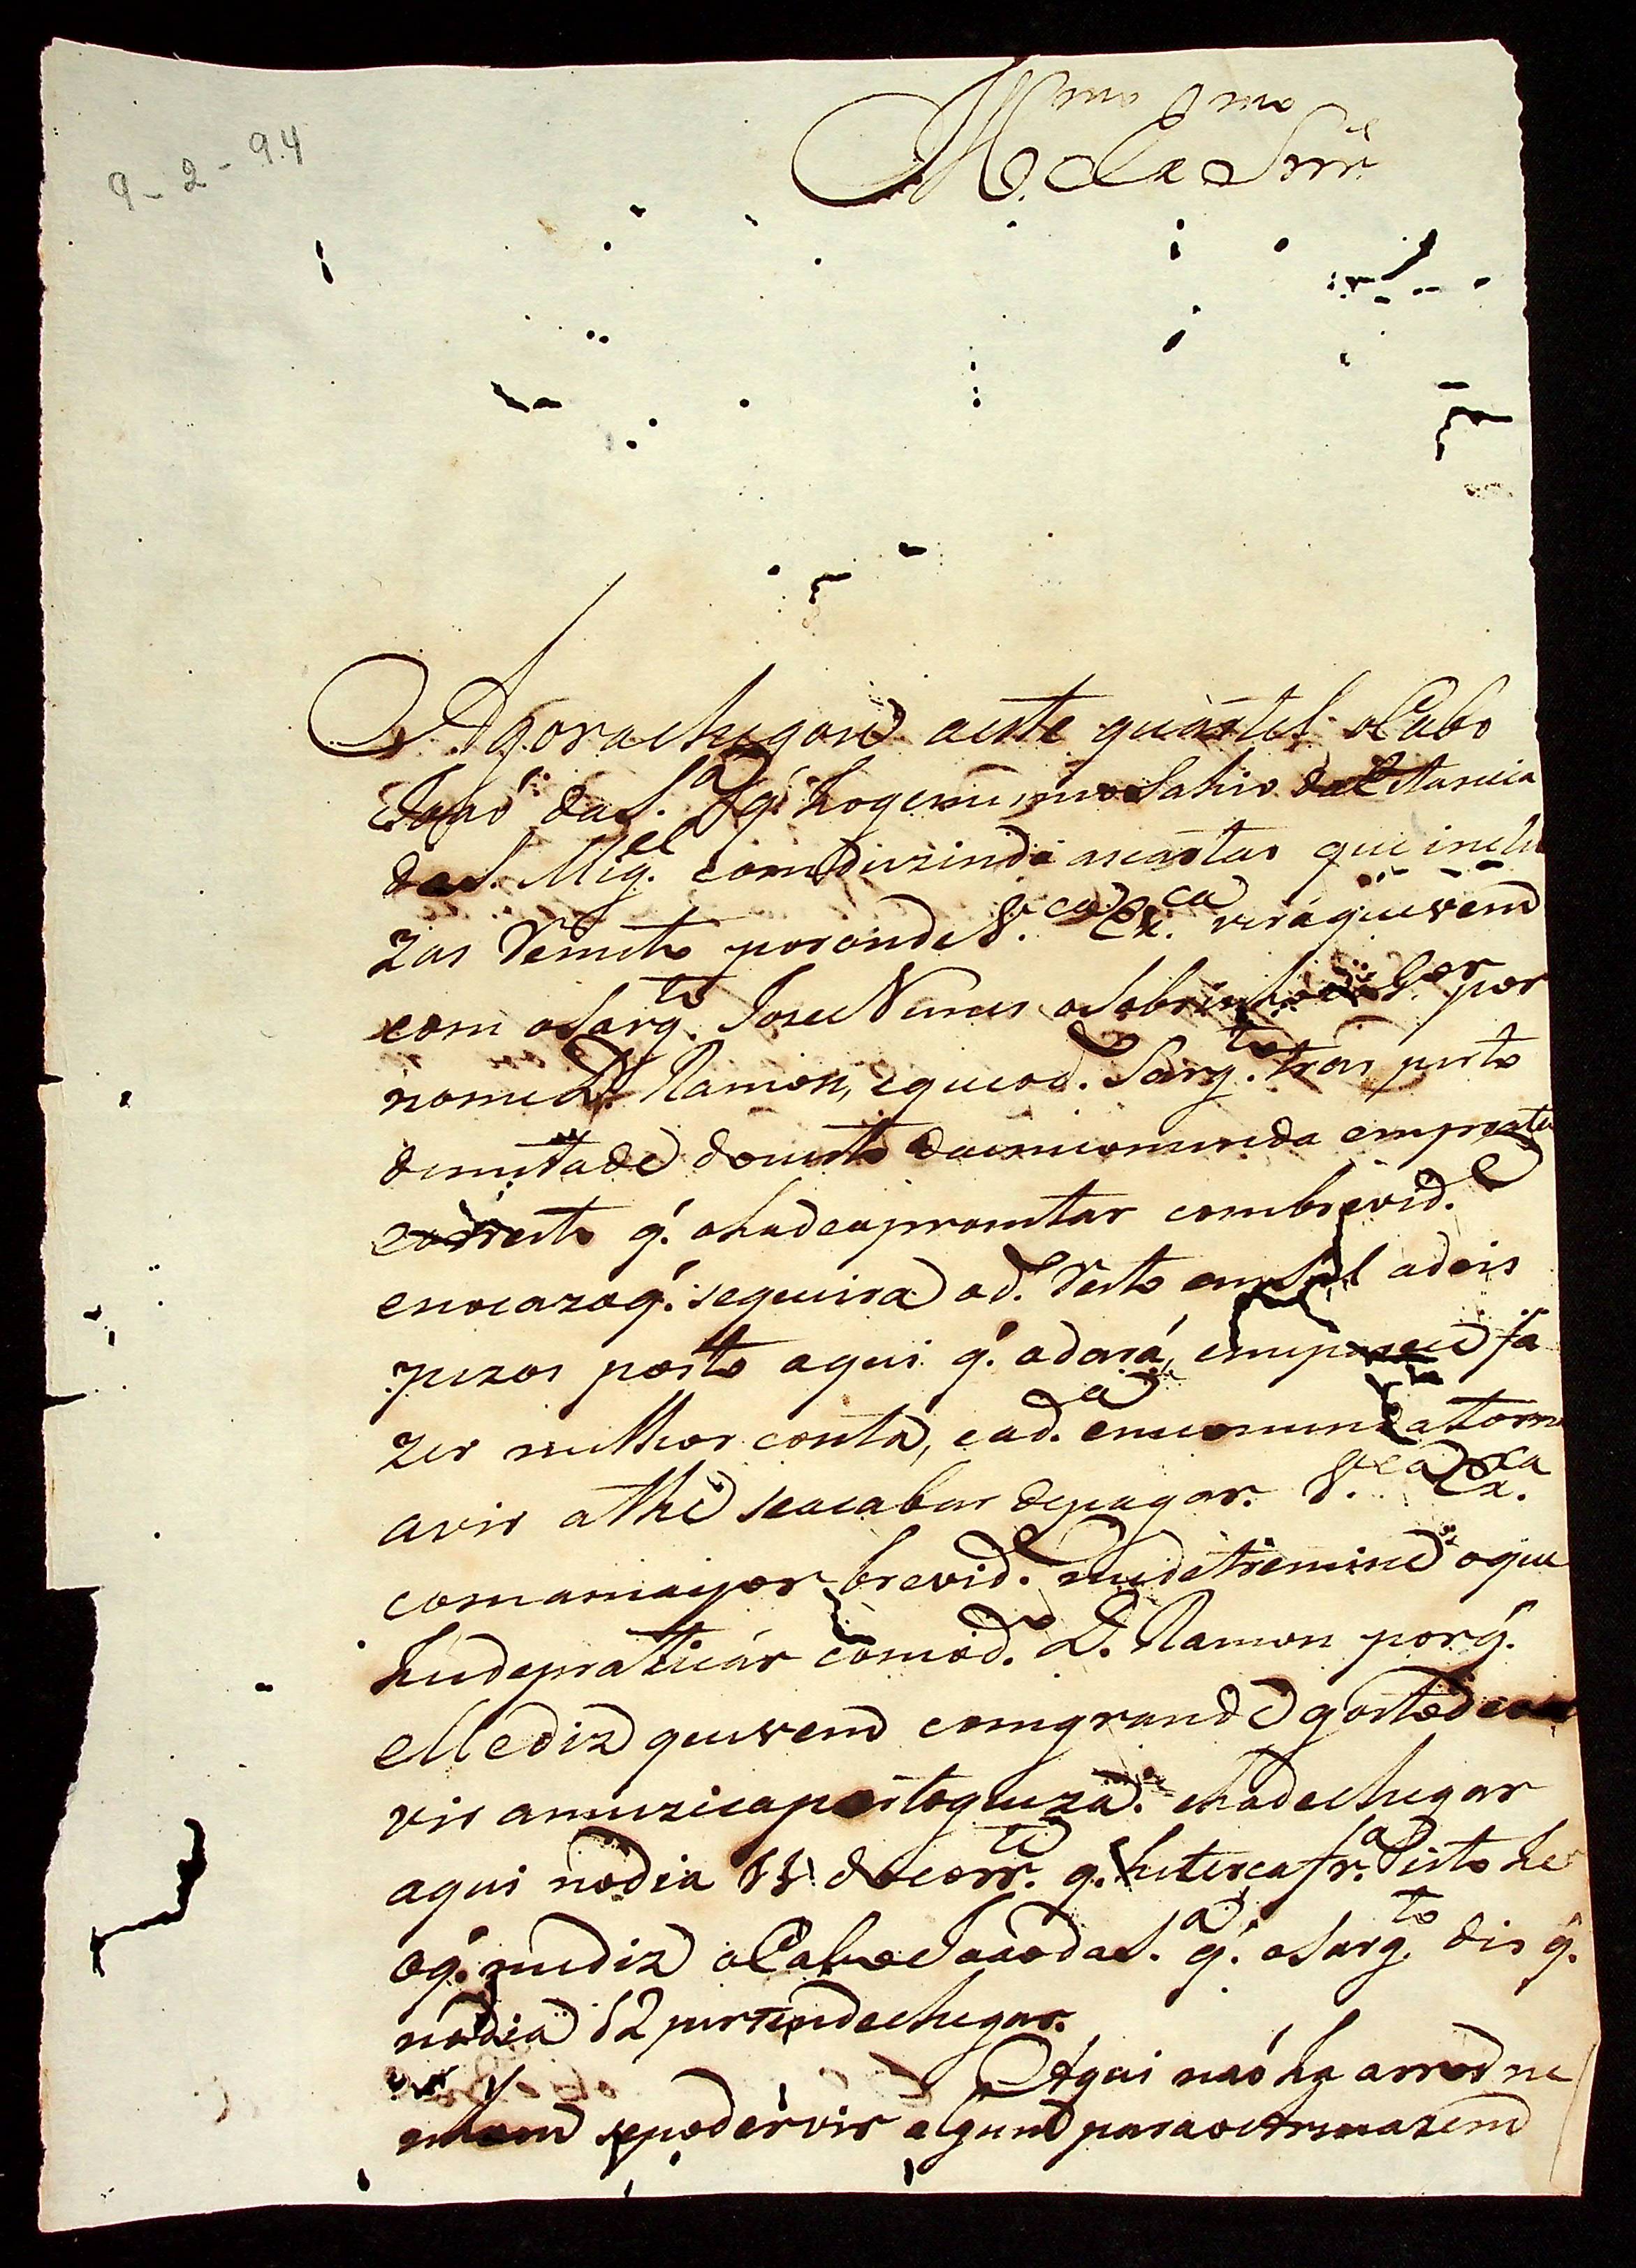 9-2-94
Ill.mo e Ex.mo Snr.
Agora chegou aeste quartel o Cabo
Joaó da S.a q.' hogemmo Sahio da Estancia
de S. Mig.el comduzindo as cartas que inclu
zas Remeto poronde V. Ex.ca verá que vem
com o Sarg.to Joze Nunes o Sobrinho do G.or por
nome D. Ramon, equeod.o Sarg.to tras perto
demetade doresto daemcomenda emprata
eorresto q.' ohadeaprontar combrevid.e
enocazoq.' sequeira od.o Resto em Sal adeis
pezos posto aqui q.' odará, emeparece fa
zer milhor conta, ead.a emcomenda torna
avir athe seacabar depagar. V. Ex.ca
comamayor brevid.e medetremine oque
heidepraticár comod.o D. Ramon porq.'
elle diz quevem comgrande gosto de
vir amuzicaportogueza. ehadechegar
aqui nodia 11 docorr.te q.' heterca fr.a isto he
oq.' mediz o Cabo Joaó da S.a q.' o Sarg.to dis q.'
nodia 12 pertendechegar.
Aqui naó ha arros ne
mhum sepodér vir algum paraoArmazem